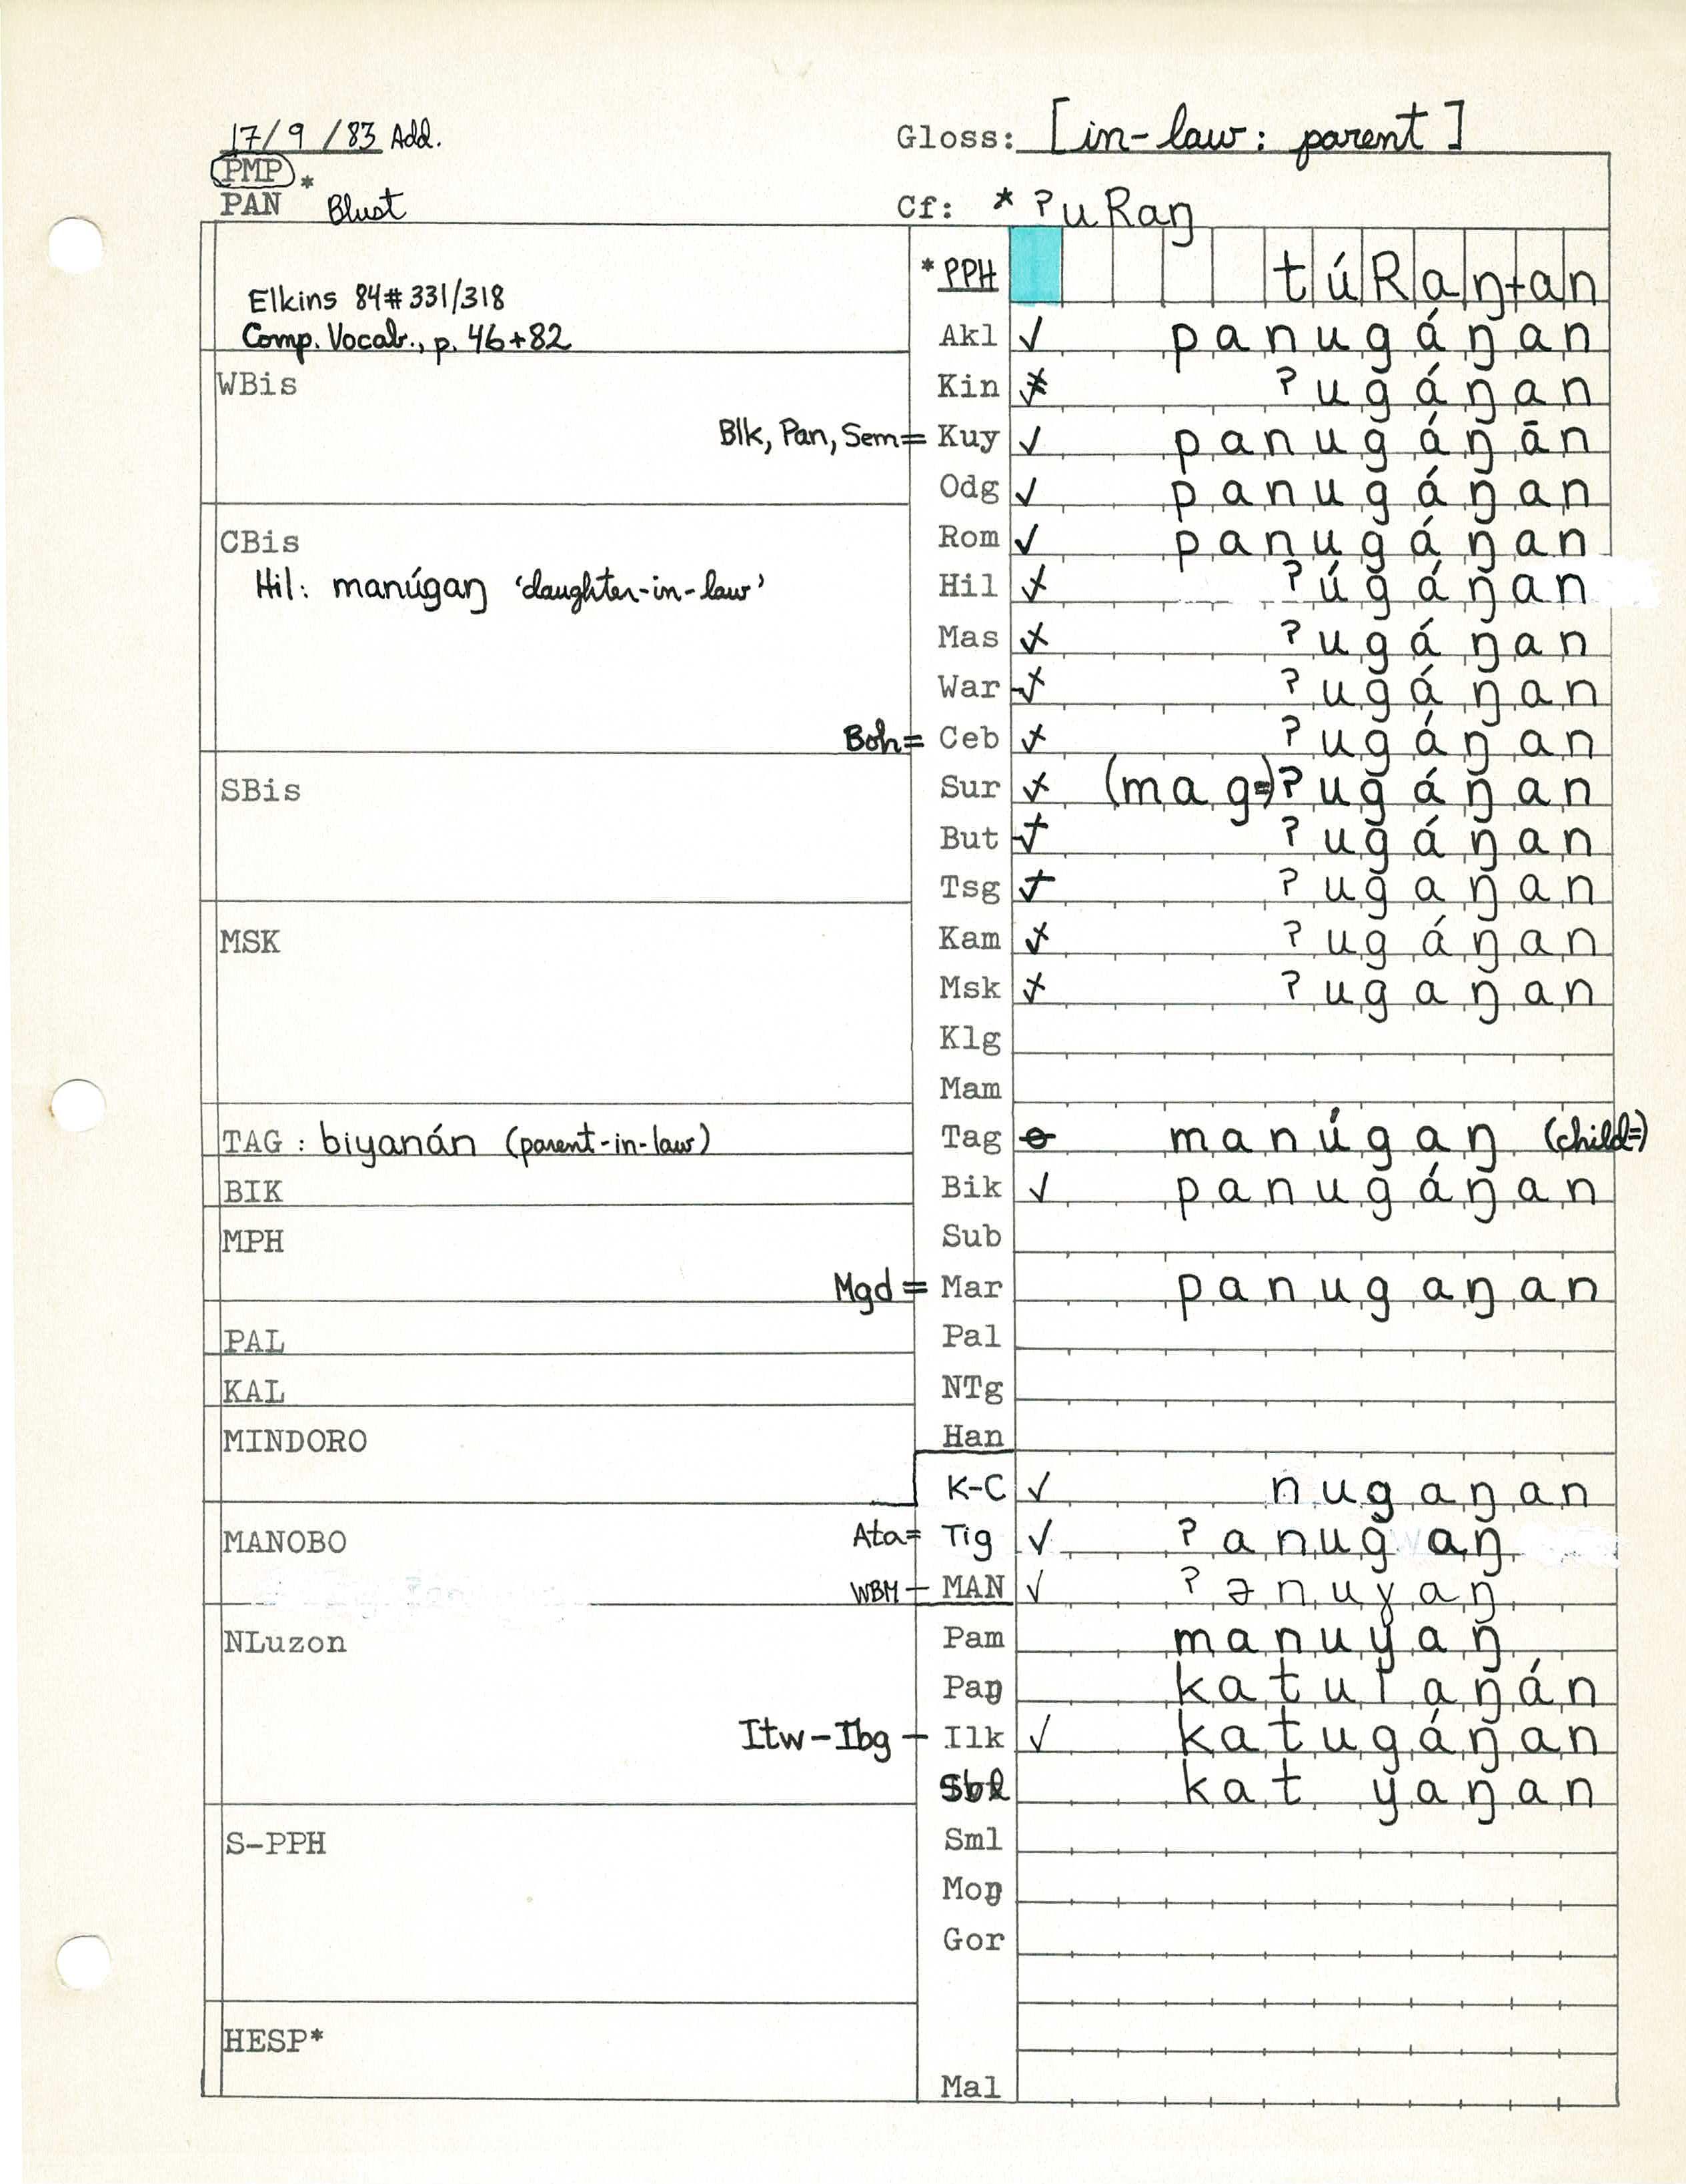 17/9/83 Add.
Gloss: [in-law: parent]
PMP *
PAN Blust
Cf: *ʔuRaŋ
*PPH túRaŋ+an
Elkins 84#331/318
Comp. Vocab., p. 46+82
Akl ✓ panugáŋan
WBis
Kin ʔugáŋan
Blk, Pan, Sem= Kuy ✓ panugáŋān
Odg ✓ panugáŋan
Rom ✓ panugáŋan
CBis
Hil: manúgaŋ ‘daughter-in-law’
Hil ʔúgáŋan
Mas ʔugáŋan
War ʔugáŋan
Boh= Ceb ʔugáŋan
SBis
Sur (mag=)ʔugáŋan
But ʔugáŋan
Tsg ʔugaŋan
MSK
Kam ʔugáŋan
Msk ʔugaŋan
Klg
Mam
TAG : biyanán (parent-in-law)
Tag manúgaŋ (child=)
BIK
Bik ✓ panugáŋan
MPH
Sub
Mgd = Mar panugaŋan
PAL
Pal
KAL
NTg
MINDORO
Han
K-C ✓ nugaŋan
MANOBO
Ata= Tig ✓ ʔanugaŋ
WBM – MAN ✓ ʔənuɣaŋ
NLuzon
Pam manuyaŋ
Paŋ katulaŋán
Itw-Ibg – Ilk ✓ katugáŋan
Sbl kat yaŋan
S-PPH
Sml
Moŋ
Gor
HESP*
Mal